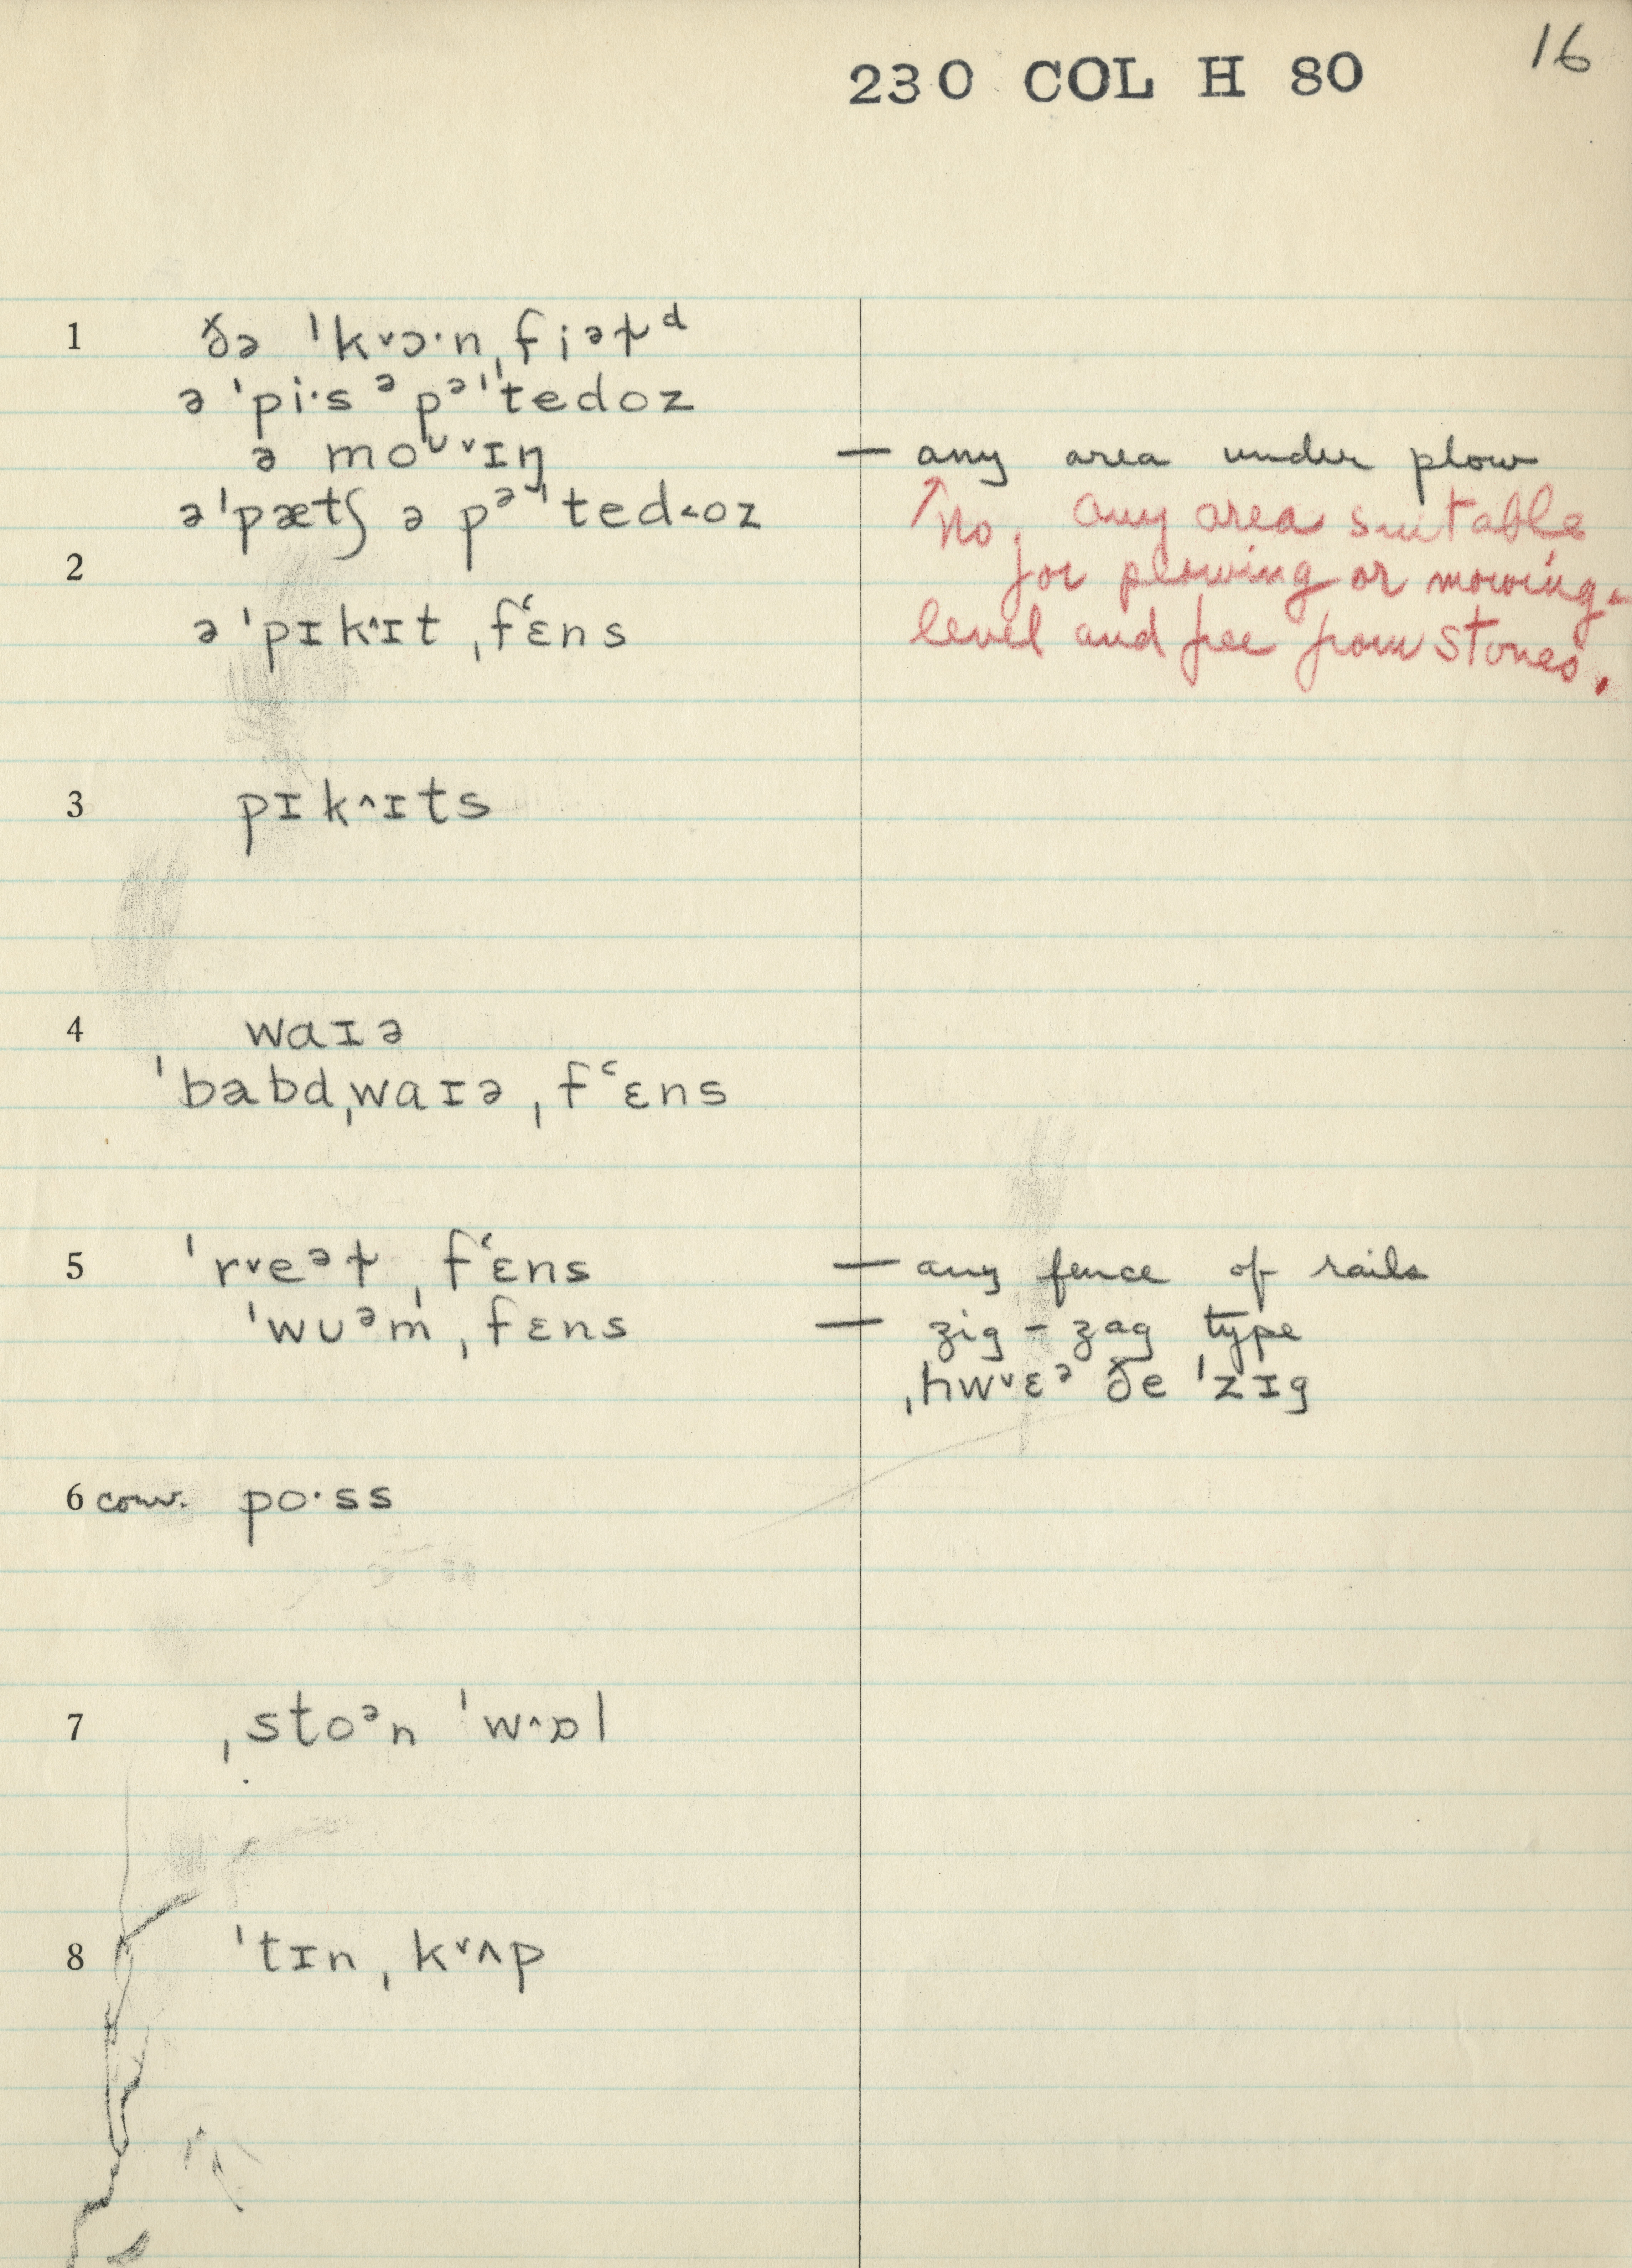 16
230 COL H 80
1 ðə ˈk˅ɔ·n ˌfiᵊɫᵈ
ə ˈpi·s ᵊ pᵊˈtedoz
ə moᴜ˅ɪŋ — any area under plow
ə ˈpætʃ ə pᵊˈted˂oz ↑ No, any area suitable
2 for plowing or mowing -
ə ˈpɪk^ɪt ˌfʿɛns level and free from stones.
3 pɪk^ɪts
4 waɪə
ˈbəbdˌwaɪə ˌfʿɛns
5 ˈr˅eᵊɫ ˌfʿɛns — any fence of rails
ˈwᴜᵊm ˌfɛns — zig-zag type
ˌhw˅ɛᵊ ðe ˈzɪg
6 conv. po·ss
7 ˌstoᵊn ˈw^ɒl
8 ˈtɪn ˌk˅ʌp